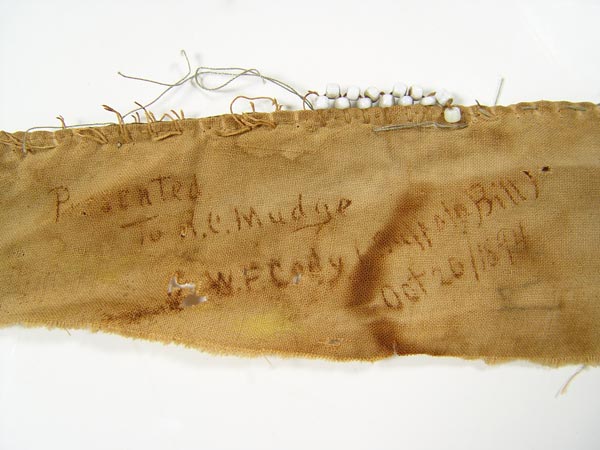 Presented
To A.C. Mudge
By W.F Cody (Buffalo Bill)
Oct 20/1894